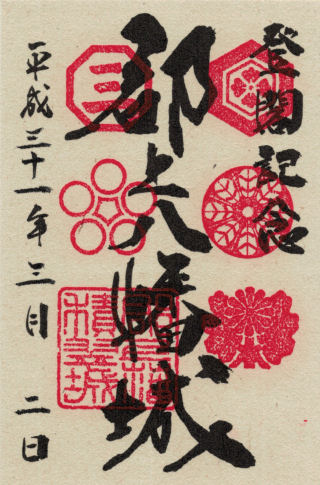 登閣記念
郡上八幡城
平成三十一年三月二日
三
積翠城